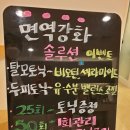 면역강화
솔루션 이벤트
탈모토닉 → 비오틴세라마이드
두피토닉 → 유수분 밸런스 조절
25회 토닉증정
50회 1회관리